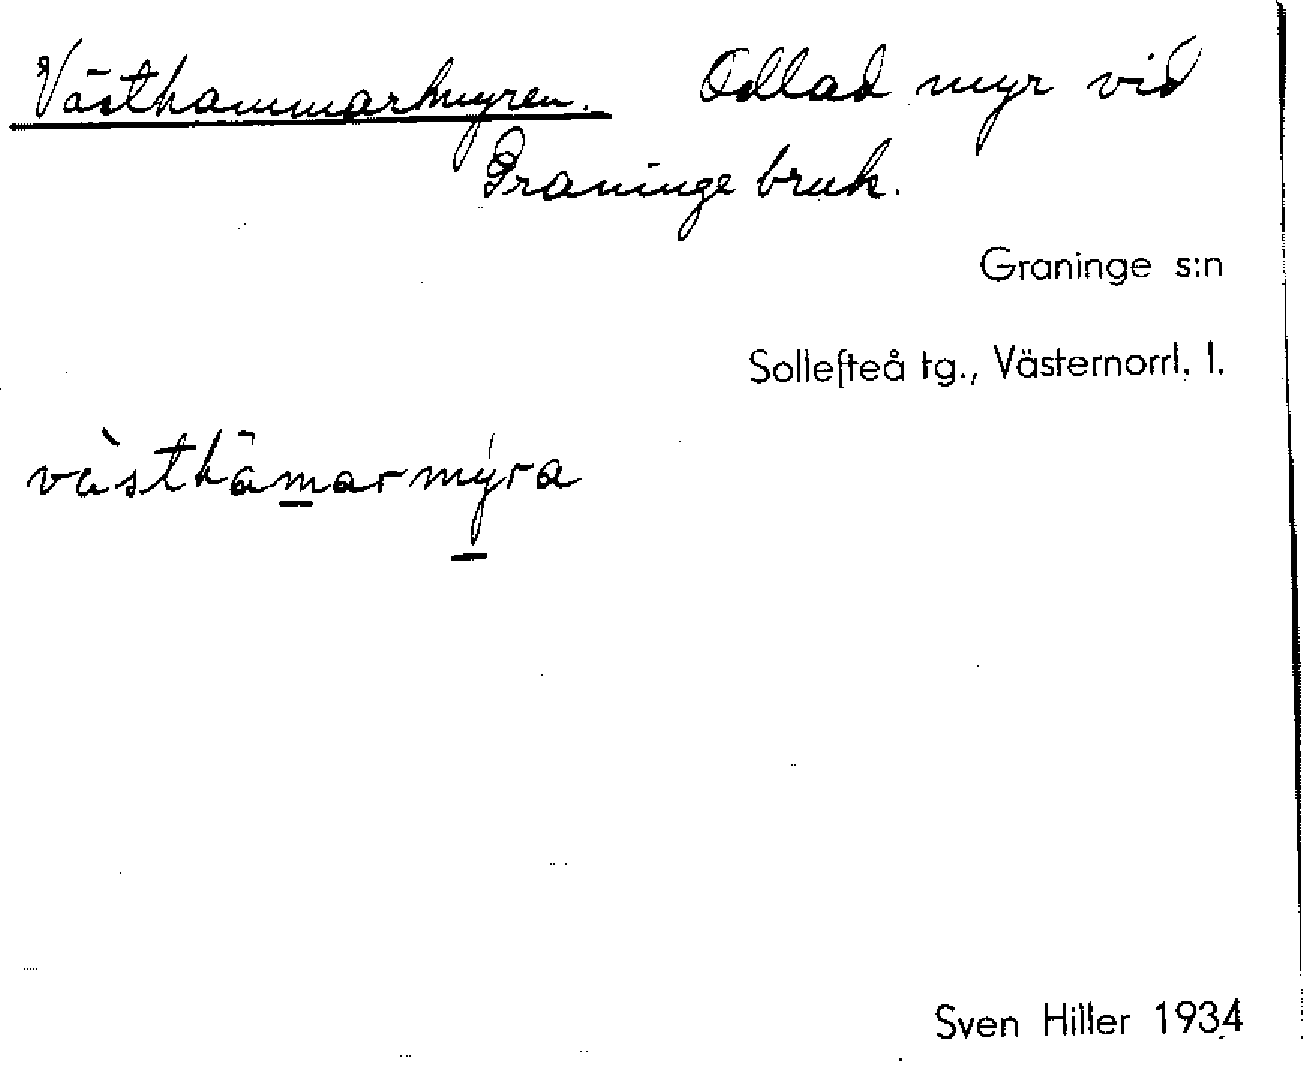 Västhammarmyren. Odlad myr vid
Graninge bruk.
Graninge s:n
Sollefteå tg., Västernorrl. l.
västhamarmyra
Sven Hiller 1934